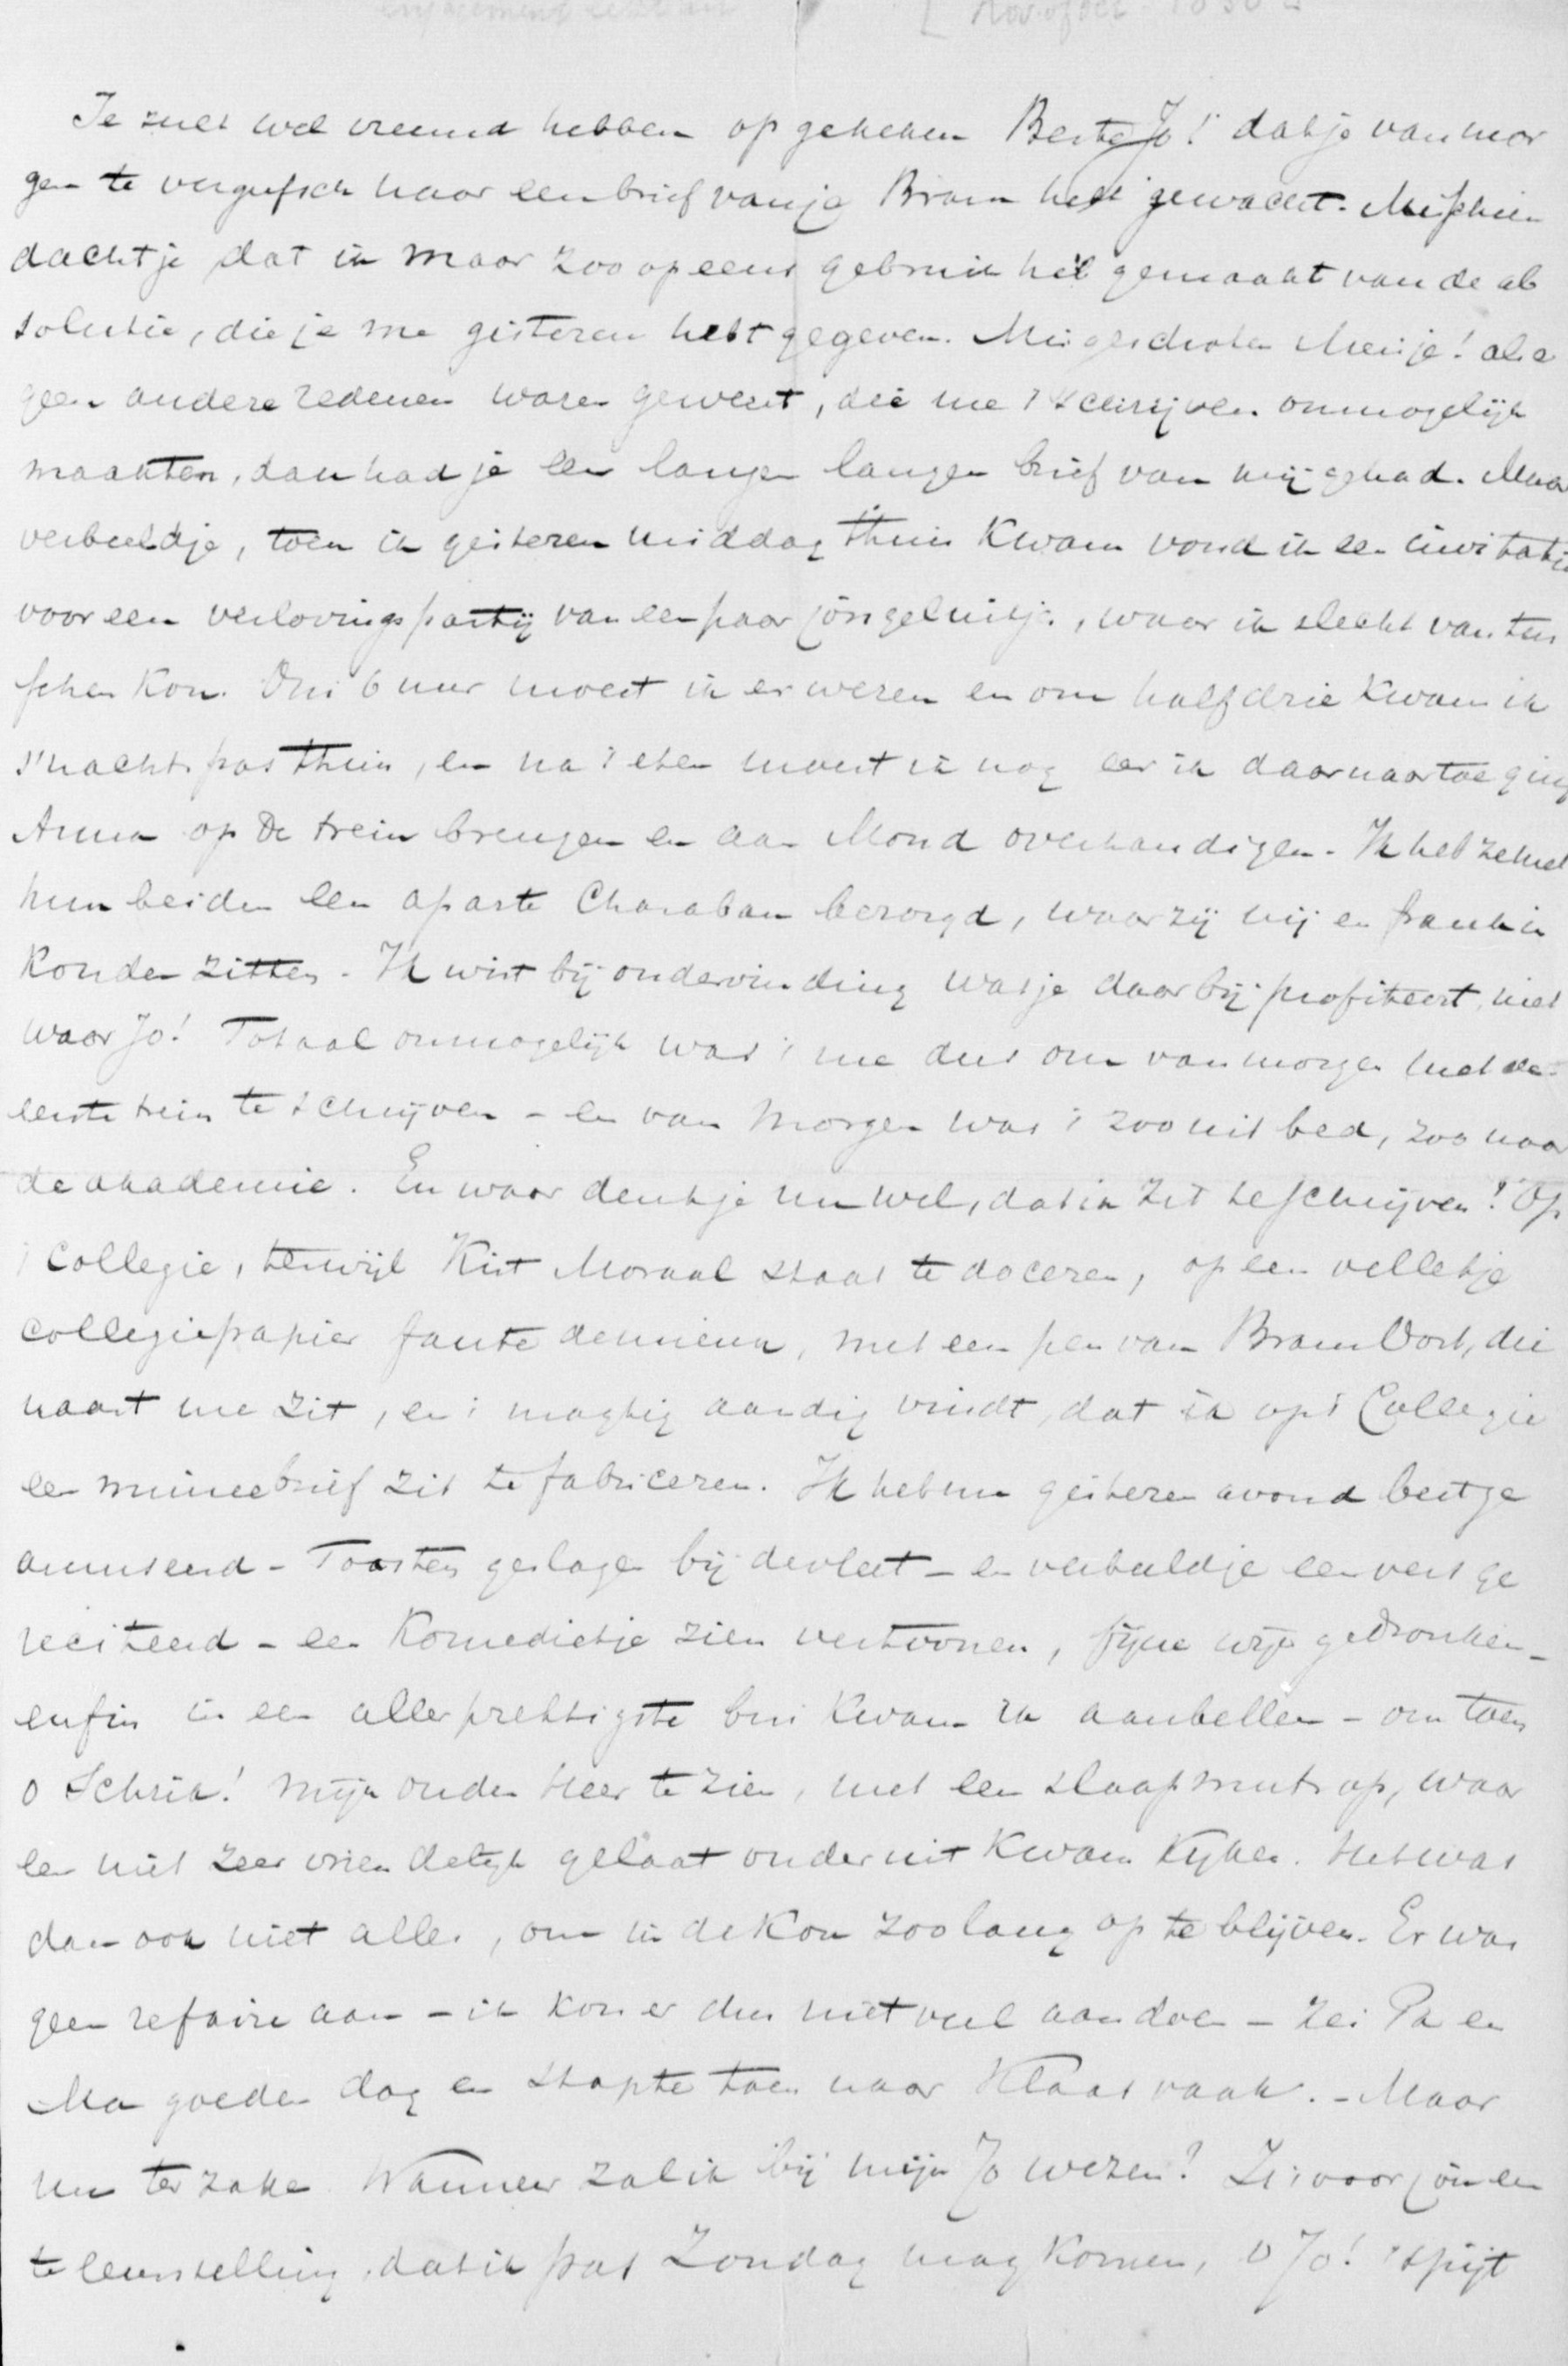 Je zult wel vreemd hebben opgekeken Beste Jo! dat je van mor
gen te vergeefsch naar een brief van je Bram hebt gewacht. Misschien
dacht je dat ik maar zoo opeens gebruik heb gemaakt van de ab
solutie, die je me gisteren hebt gegeven. Mis geschoten Meisje! als er
geen andere redenen waren geweest, die me 't schrijven onmogelijk
maakten, dan had je een langen langen brief van mij gehad. Maar
verbeeld je, toen ik gisteren middag thuis kwam vond ik een invitatie
voor een verlovingspartij van een paar jongeluitjes, waar ik slecht van tus
schen kon. Om 6 uur moest ik er wezen en om half drie kwam ik
s'nachts pas thuis, en na 't eten moest ik nog eer ik daar naar toe ging
Anna op de trein brengen en aan Mond overhandigen. Ik heb ze met
hun beiden een aparte Charaban bezorgd, waar zij vrij en frank in
konden zitten. Ik wist bij ondervinding wat je daar bij profiteert, niet
waar Jo! Totaal onmogelijk was 't me dus om van morgen met de
eerste trein te schrijven - en van morgen was 't zoo uit bed, zoo naar
de akademie. En waar denk je nu wel, dat ik zit te schrijven? Op
't Collegie, terwijl Kist Moraal staat te doceren, op een velletje
collegiepapier faute de mieux, met een pen van Bram Oort, die
naast me zit, en 't magtig aardig vindt, dat ik op 't Collegie
een minnebrief zit te fabriceren. Ik heb me gisteren avond best ge
amuseerd - Toasten geslagen bij de vleet - en verbeeld je een vers ge
reciteerd - een komedietje zien vertoonen, fijne wijn gedronken -
enfin in een allerprettigste bui kwam ik aanbellen - om toen
o Schrik! mijn ouden Heer te zien, met een slaapmuts op, waar
een niet zeer vriendelijk gelaat onderuit kwam kijken. Het was
dan ook niet alles, om in de kou zoo lang op te blijven. Er was
geen refaire aan - ik kon er dus niet veel aan doen - zei Pa en
Ma goeden dag en stapte toen naar Klaas vaak. - Maar
nu ter zake. Wanneer zal ik bij mijn Jo wezen? 't Is voor jou een
teleurstelling, dat ik pas Zondag mag komen, o Jo! 't spijt